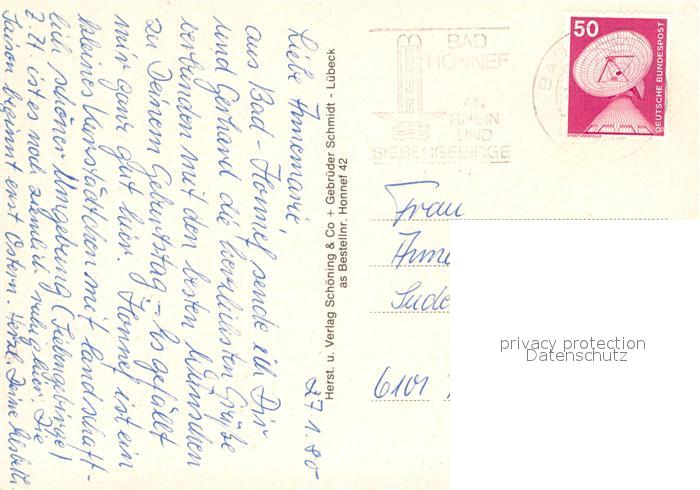 27.1.80
Liebe Annemarie!
aus Bad-Honnef sende ich Dir
und Gerhard die herzlichsten Grüße
verbunden mit den besten Wünschen
zu Deinem Geburtstag – Es gefällt
mir ganz gut hier. Honnef ist ein
kleines Kurstädtchen mit landschaft-
lich schöner Umgebung (Siebengebirge)
Z. Zt. ist es noch ziemlich ruhig hier. Die
Saison beginnt erst Ostern. Herzl. Deine
Herst. u. Verlag Schöning & Co + Gebrüder Schmidt - Lübeck
as Bestellnr. Honnef 42
BAD
HONNEF
AN
RHEIN
UND
SIEBENGEBIRGE
BAD
50
DEUTSCHE BUNDESPOST
ERDEFUNKSTELLE
Frau
Anne
Sude
6101
privacy protection
Datenschutz